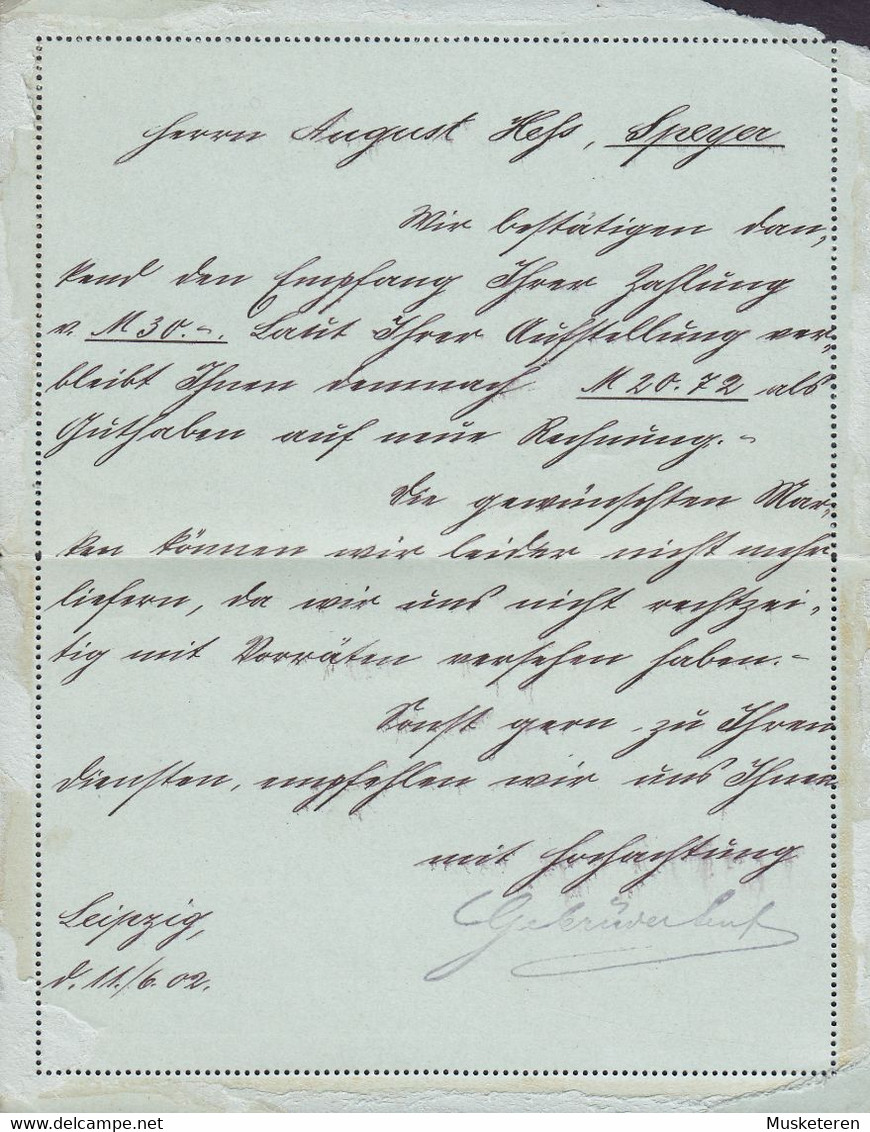 Herrn August Hess, Speyer
Wir bestätigen dan-
kend den Empfang Ihrer Zahlung
v. M 30.-. Laut Ihrer Aufstellung ver-
bleibt Ihnen demnach M 20.72 als
Guthaben auf neue Rechnung.-
Die gewünschten Mar-
ken können wir leider nicht mehr
liefern, da wir uns nicht rechtzei-
tig mit Vorräten versehen haben.-
Sonst gern zu Ihren
Diensten, empfehlen wir uns Ihnen
mit Hochachtung
Gebrüder Senf
Leipzig,
d. 11./6.02.
Musketeren